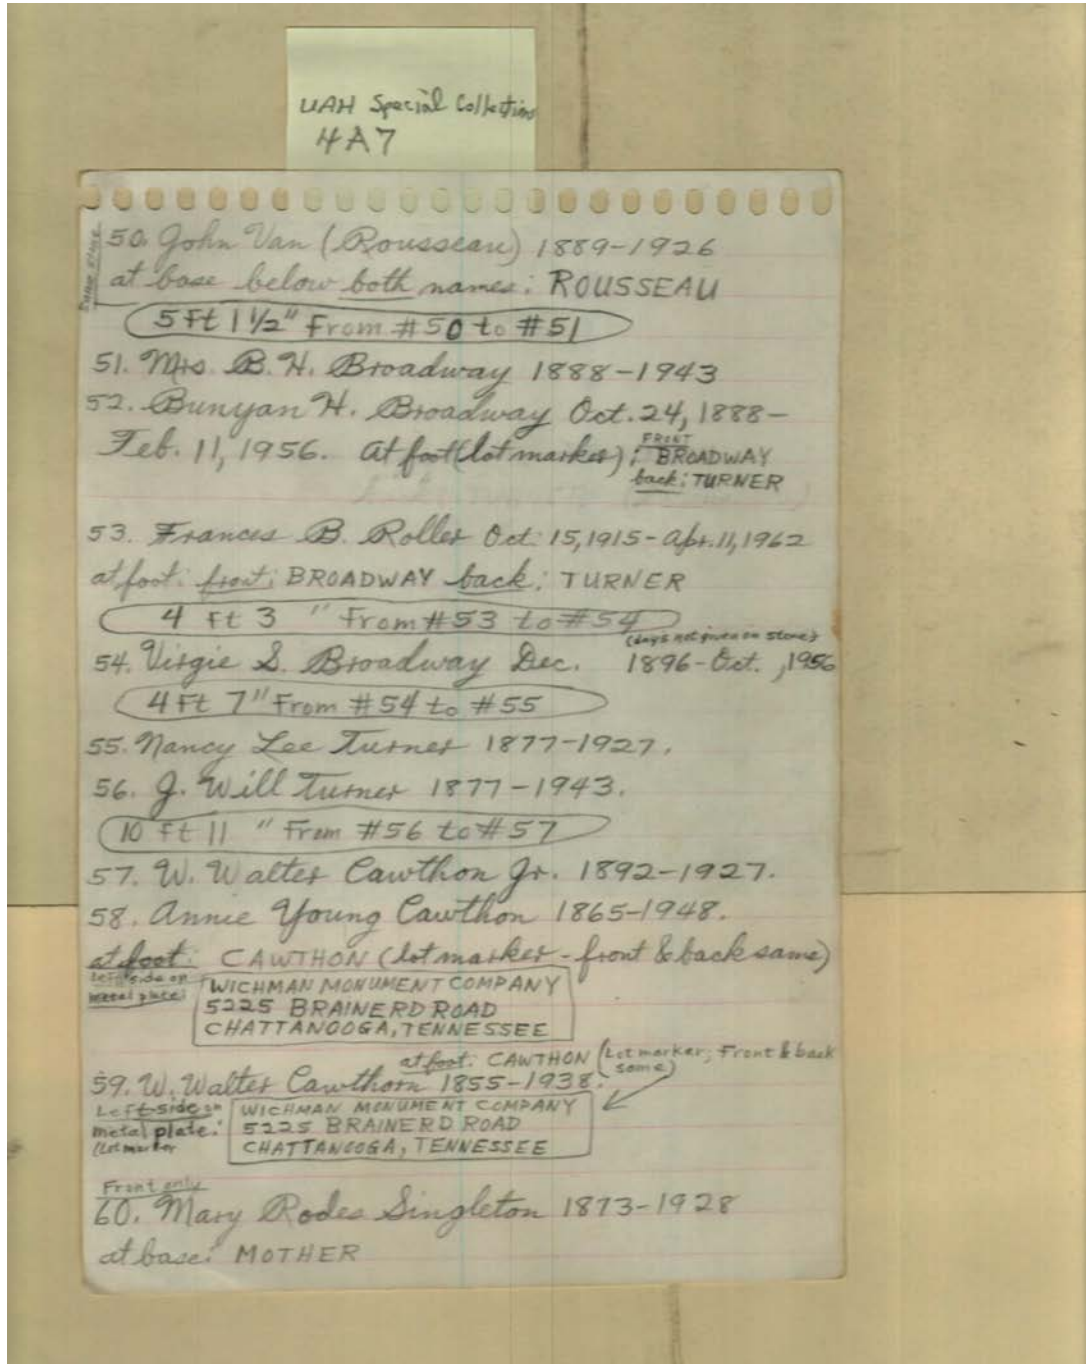 UAH Special Collections
4A7
Same stone
50. John Van (Rousseau) 1889-1926
at base below both names: ROUSSEAU
5 Ft 1 1/2" From #50 to #51
51. Mrs. B. H. Broadway 1888-1943
52. Bunyan H. Broadway Oct. 24, 1888-
Feb. 11, 1956. at foot (lot marker): FRONT BROADWAY
back: TURNER
53. Frances B. Roller Oct. 15, 1915-Apr. 11, 1962
at foot: front: BROADWAY back: TURNER
4 Ft 3 " From #53 to #54
(days not given on stone)
54. Virgie S. Broadway Dec. 1896-Oct. , 1956
4 Ft 7" From #54 to #55
55. Nancy Lee Turner 1877-1927.
56. J. Will Turner 1877-1943.
10 Ft 11 " From #56 to #57
57. W. Walter Cawthon Jr. 1892-1927.
58. Annie Young Cawthon 1865-1948.
at foot: CAWTHON (lot marker - front & back same)
Left side on
metal plate:
WICHMAN MONUMENT COMPANY
5225 BRAINERD ROAD
CHATTANOOGA, TENNESSEE
at foot: CAWTHON (Lot marker; Front & back
same)
59. W. Walter Cawthorn 1855-1938.
Left side on
metal plate:
(Lot marker
WICHMAN MONUMENT COMPANY
5225 BRAINERD ROAD
CHATTANOOGA, TENNESSEE
Front only
60. Mary Rodes Singleton 1873-1928
at base: MOTHER